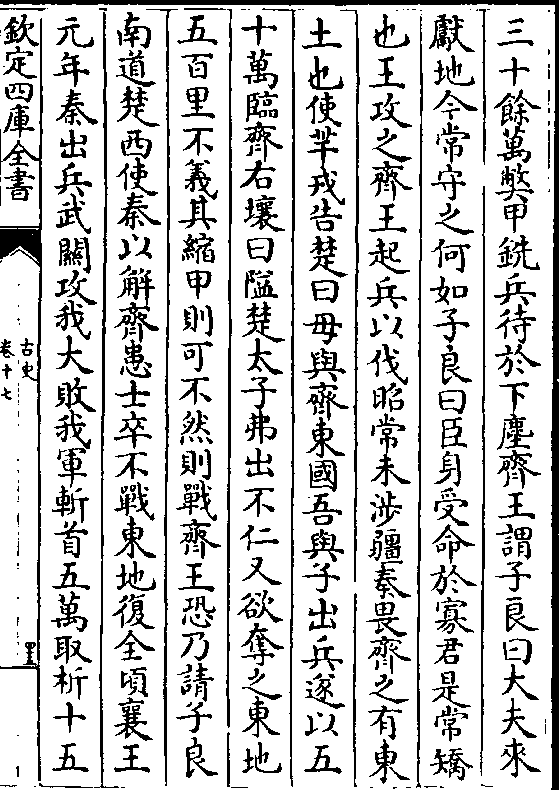 三十餘萬獘甲銑兵待於下塵齊王謂子良曰大夫來
獻地今常守之何如子良曰臣身受命於寡君是常矯
也王攻之齊王起兵以伐昭常未涉疆秦畏齊之有東
土也使芈戎告楚曰毋與齊東國吾與子出兵遂以五
十萬臨齊右壤曰隘楚太子弗出不仁又欲奪之東地
五百里不義其縮甲則可不然則戰齊王恐乃請子良
南道楚西使秦以解齊患士卒不戰東地復全頃襄王
元年秦出兵武關攻我大敗我軍斬首五萬取析十五
欽定四庫全書
古史
卷十七